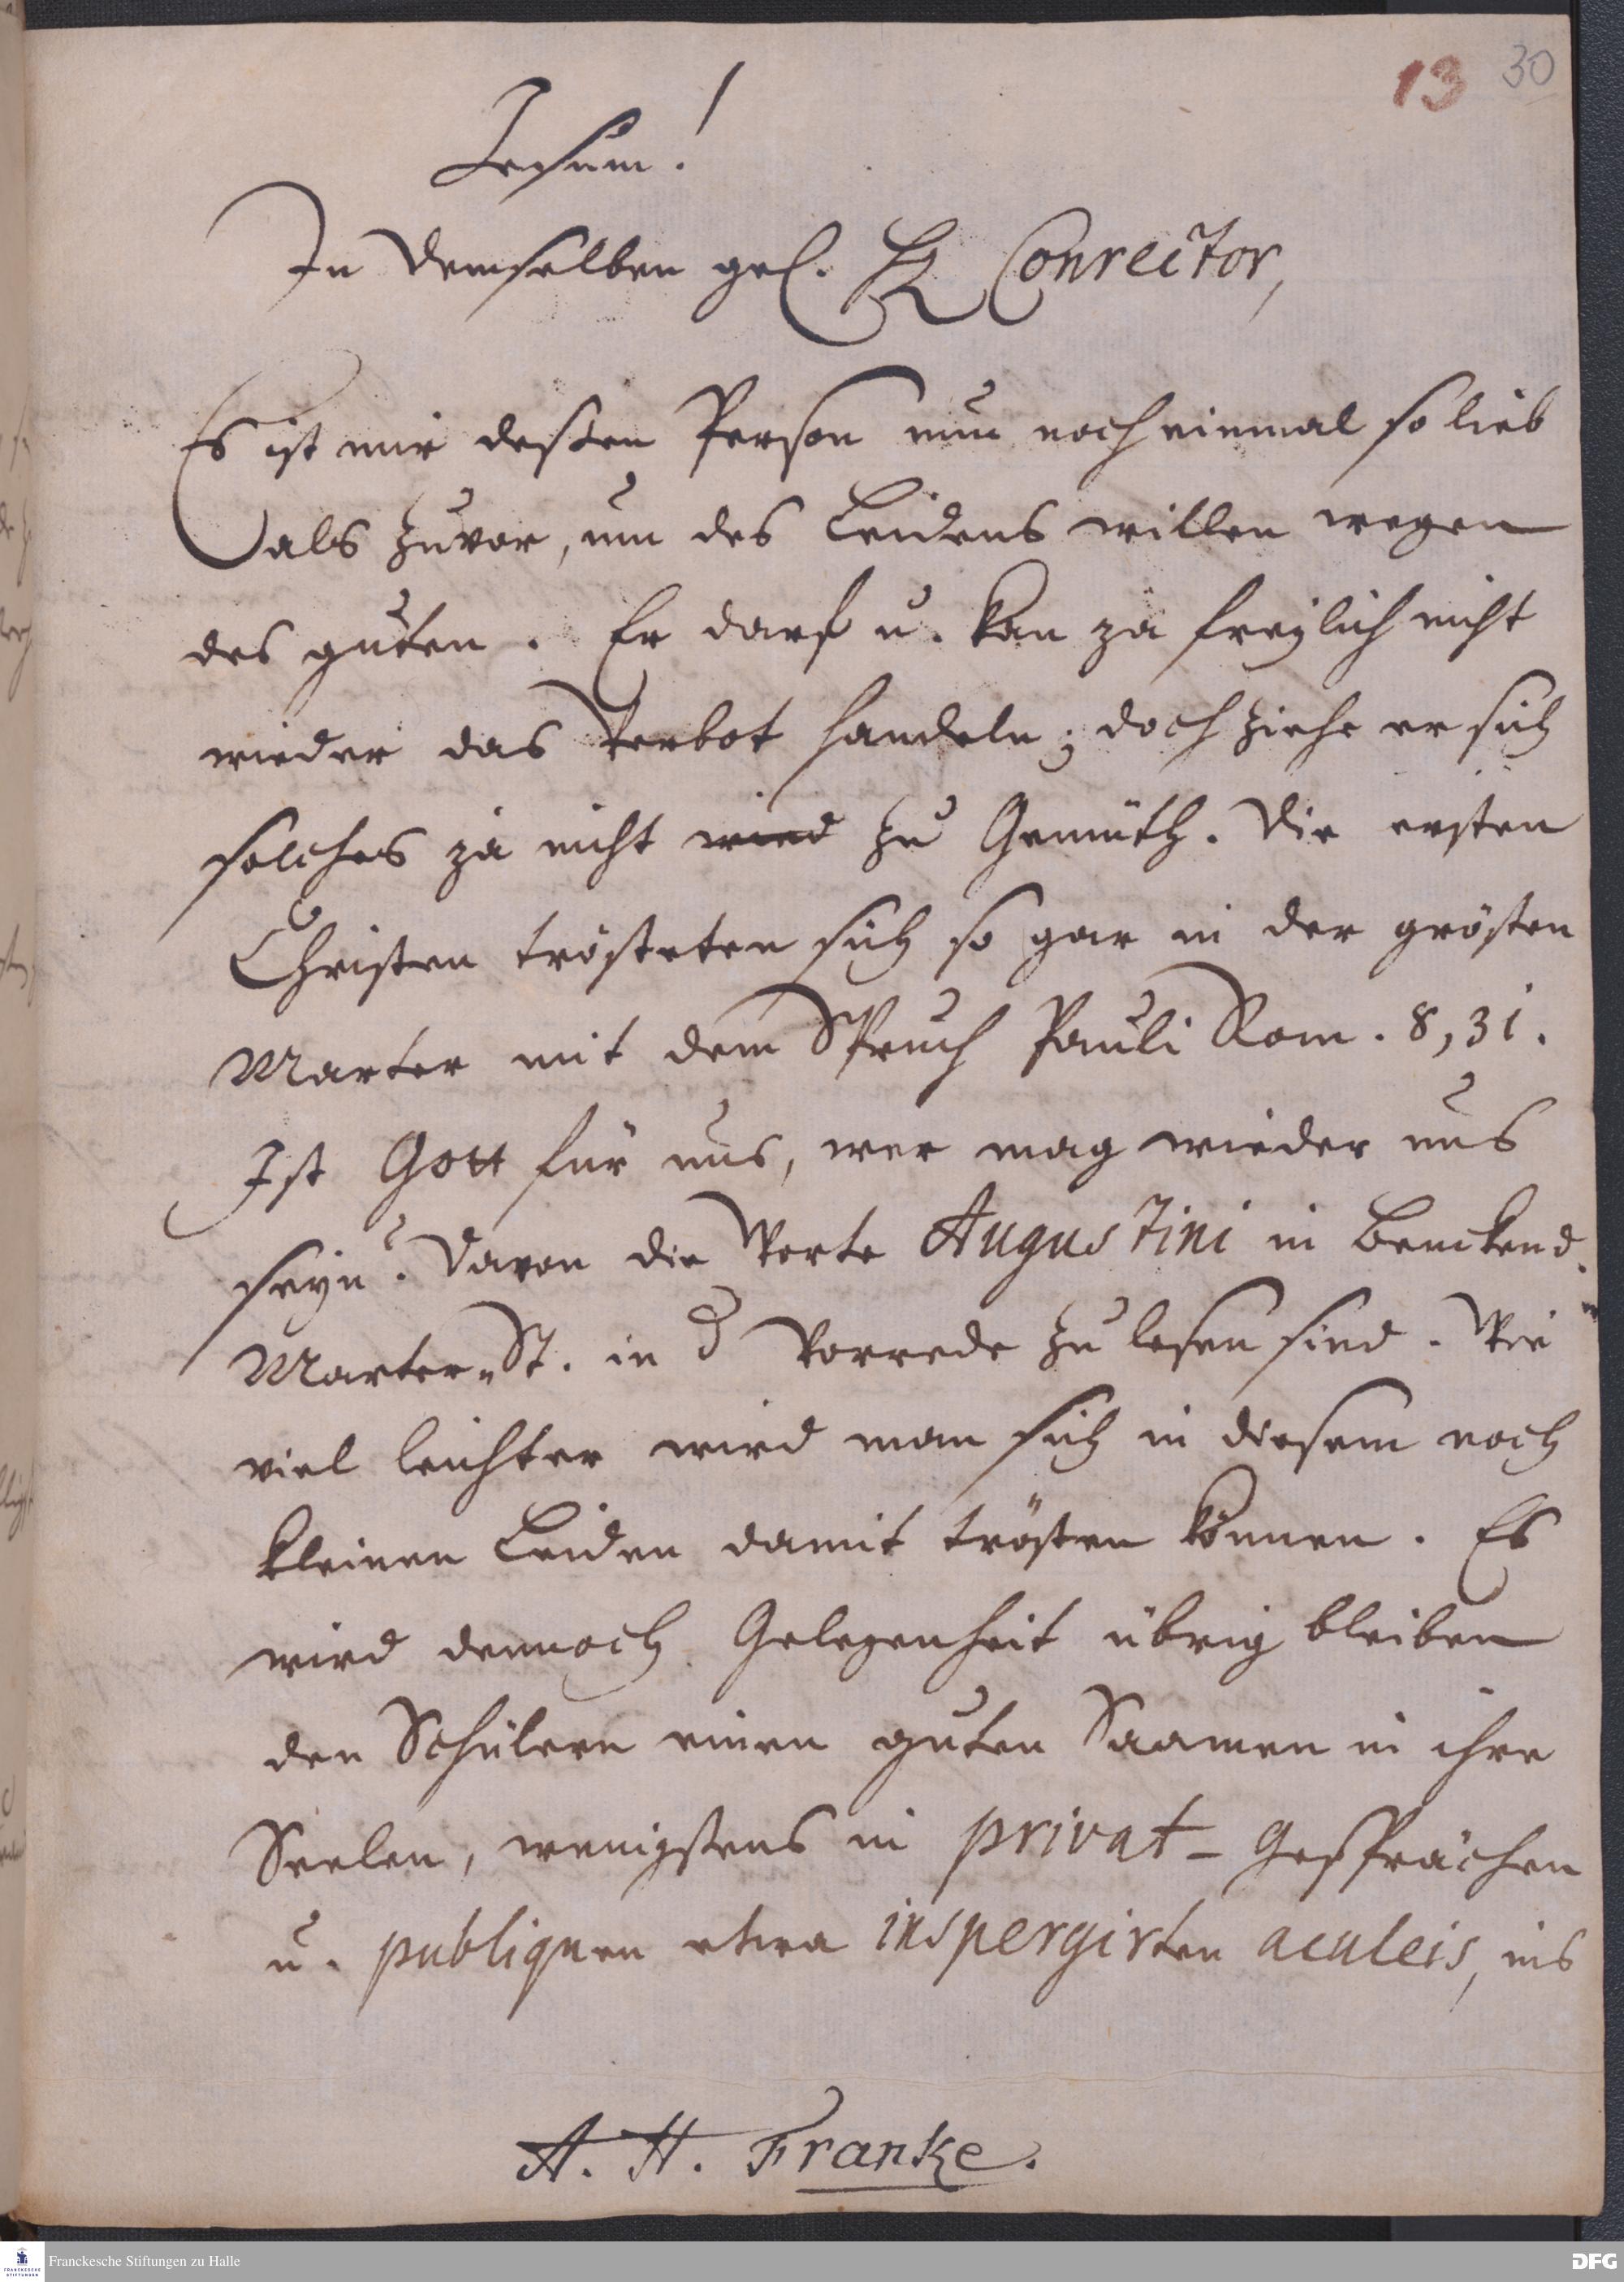 13 30
Jesum!
In demselben gel. H Conrector,
Es ist mir deßen Person nun noch einmal so lieb
als zuvor, um des Leidens willen wegen
des guten. Er darf u. kan ja freylich nicht
wieder das Verbot handeln; doch ziehe er sich
solches ja nicht wied zu Gemüth. Die ersten
Christen trösteten sich so gar in der grösten
Marter mit dem Spruch Pauli Rom. 8,31.
Ist Gott für uns, wer mag wieder uns
seyn? Davon die Worte Augustini in
Marter-St. in d Vorrede zu lesen sind. Wie
viel leichter wird man sich in diesem noch
kleinen Leiden damit trösten können. Es
wird dennoch Gelegenheit übrig bleiben
den Schülern einen guten Saamen in ihre
Seelen, wenigstens in privat-Gesprächen
u. publiquen etwa inspergirten aculeis, ins
A. H. Franke.
Franckesche Stiftungen zu Halle
DFG